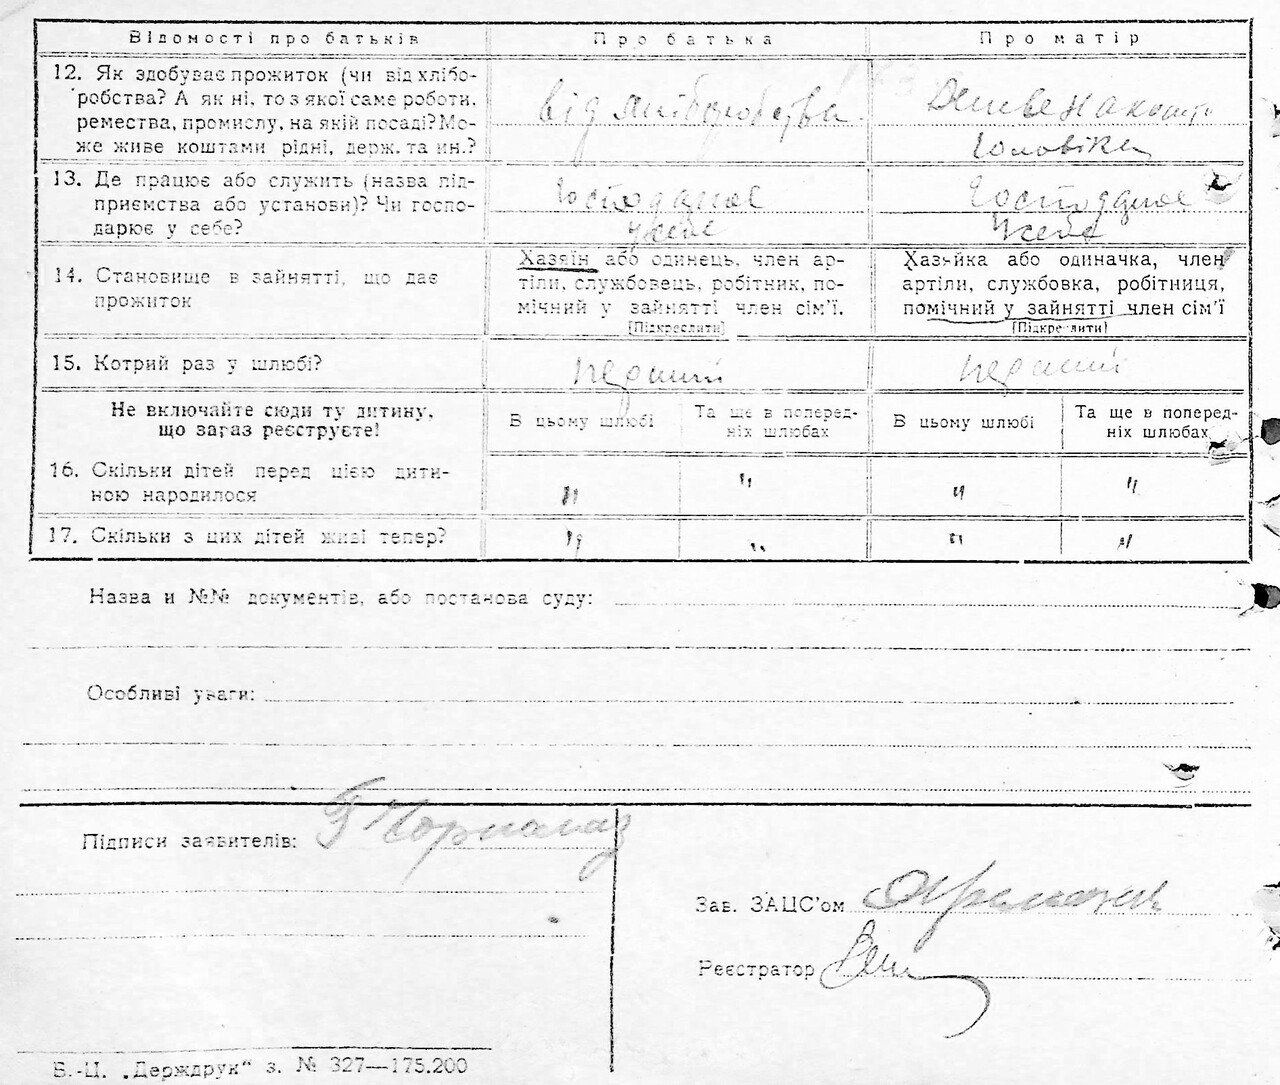 Відомості про батьків
Про батька
Про матір
12. Як здобуває прожиток (чи від хлібо-
робства? А як ні, то з якої саме роботи,
ремества, промислу, на якій посаді? Мо-
же живе коштами рідні, держ. та ин.?
від хліборобства
живе на кошти
чоловіка
13. Де працює або служить (назва під-
приємства або установи)? Чи госпо-
дарює у себе?
Господарює
у себе
Господарює
у себе
14. Становище в зайнятті, що дає
прожиток
Хазяїн або одинець, член ар-
тіли, службовець, робітник, по-
мічний у зайнятті член сім'ї.
[Підкреслити]
Хазяйка або одиначка, член
артіли, службовка, робітниця,
помічний у зайнятті член сім'ї
[Підкреслити]
15. Котрий раз у шлюбі?
перший
перший
Не включайте сюди ту дитину,
що зараз реєструєте!
В цьому шлюбі
Та ще в поперед-
ніх шлюбах
В цьому шлюбі
Та ще в поперед-
ніх шлюбах
16. Скільки дітей перед цією дити-
ною народилося
" " " "
17. Скільки з цих дітей живі тепер?
" " " "
Назва и №№ документів, або постанова суду:
Особливі уваги:
Підписи заявителів:
Зав. ЗАЦС'ом
Реєстратор
Б.-Ц. „Держдрук" з. № 327—175.200